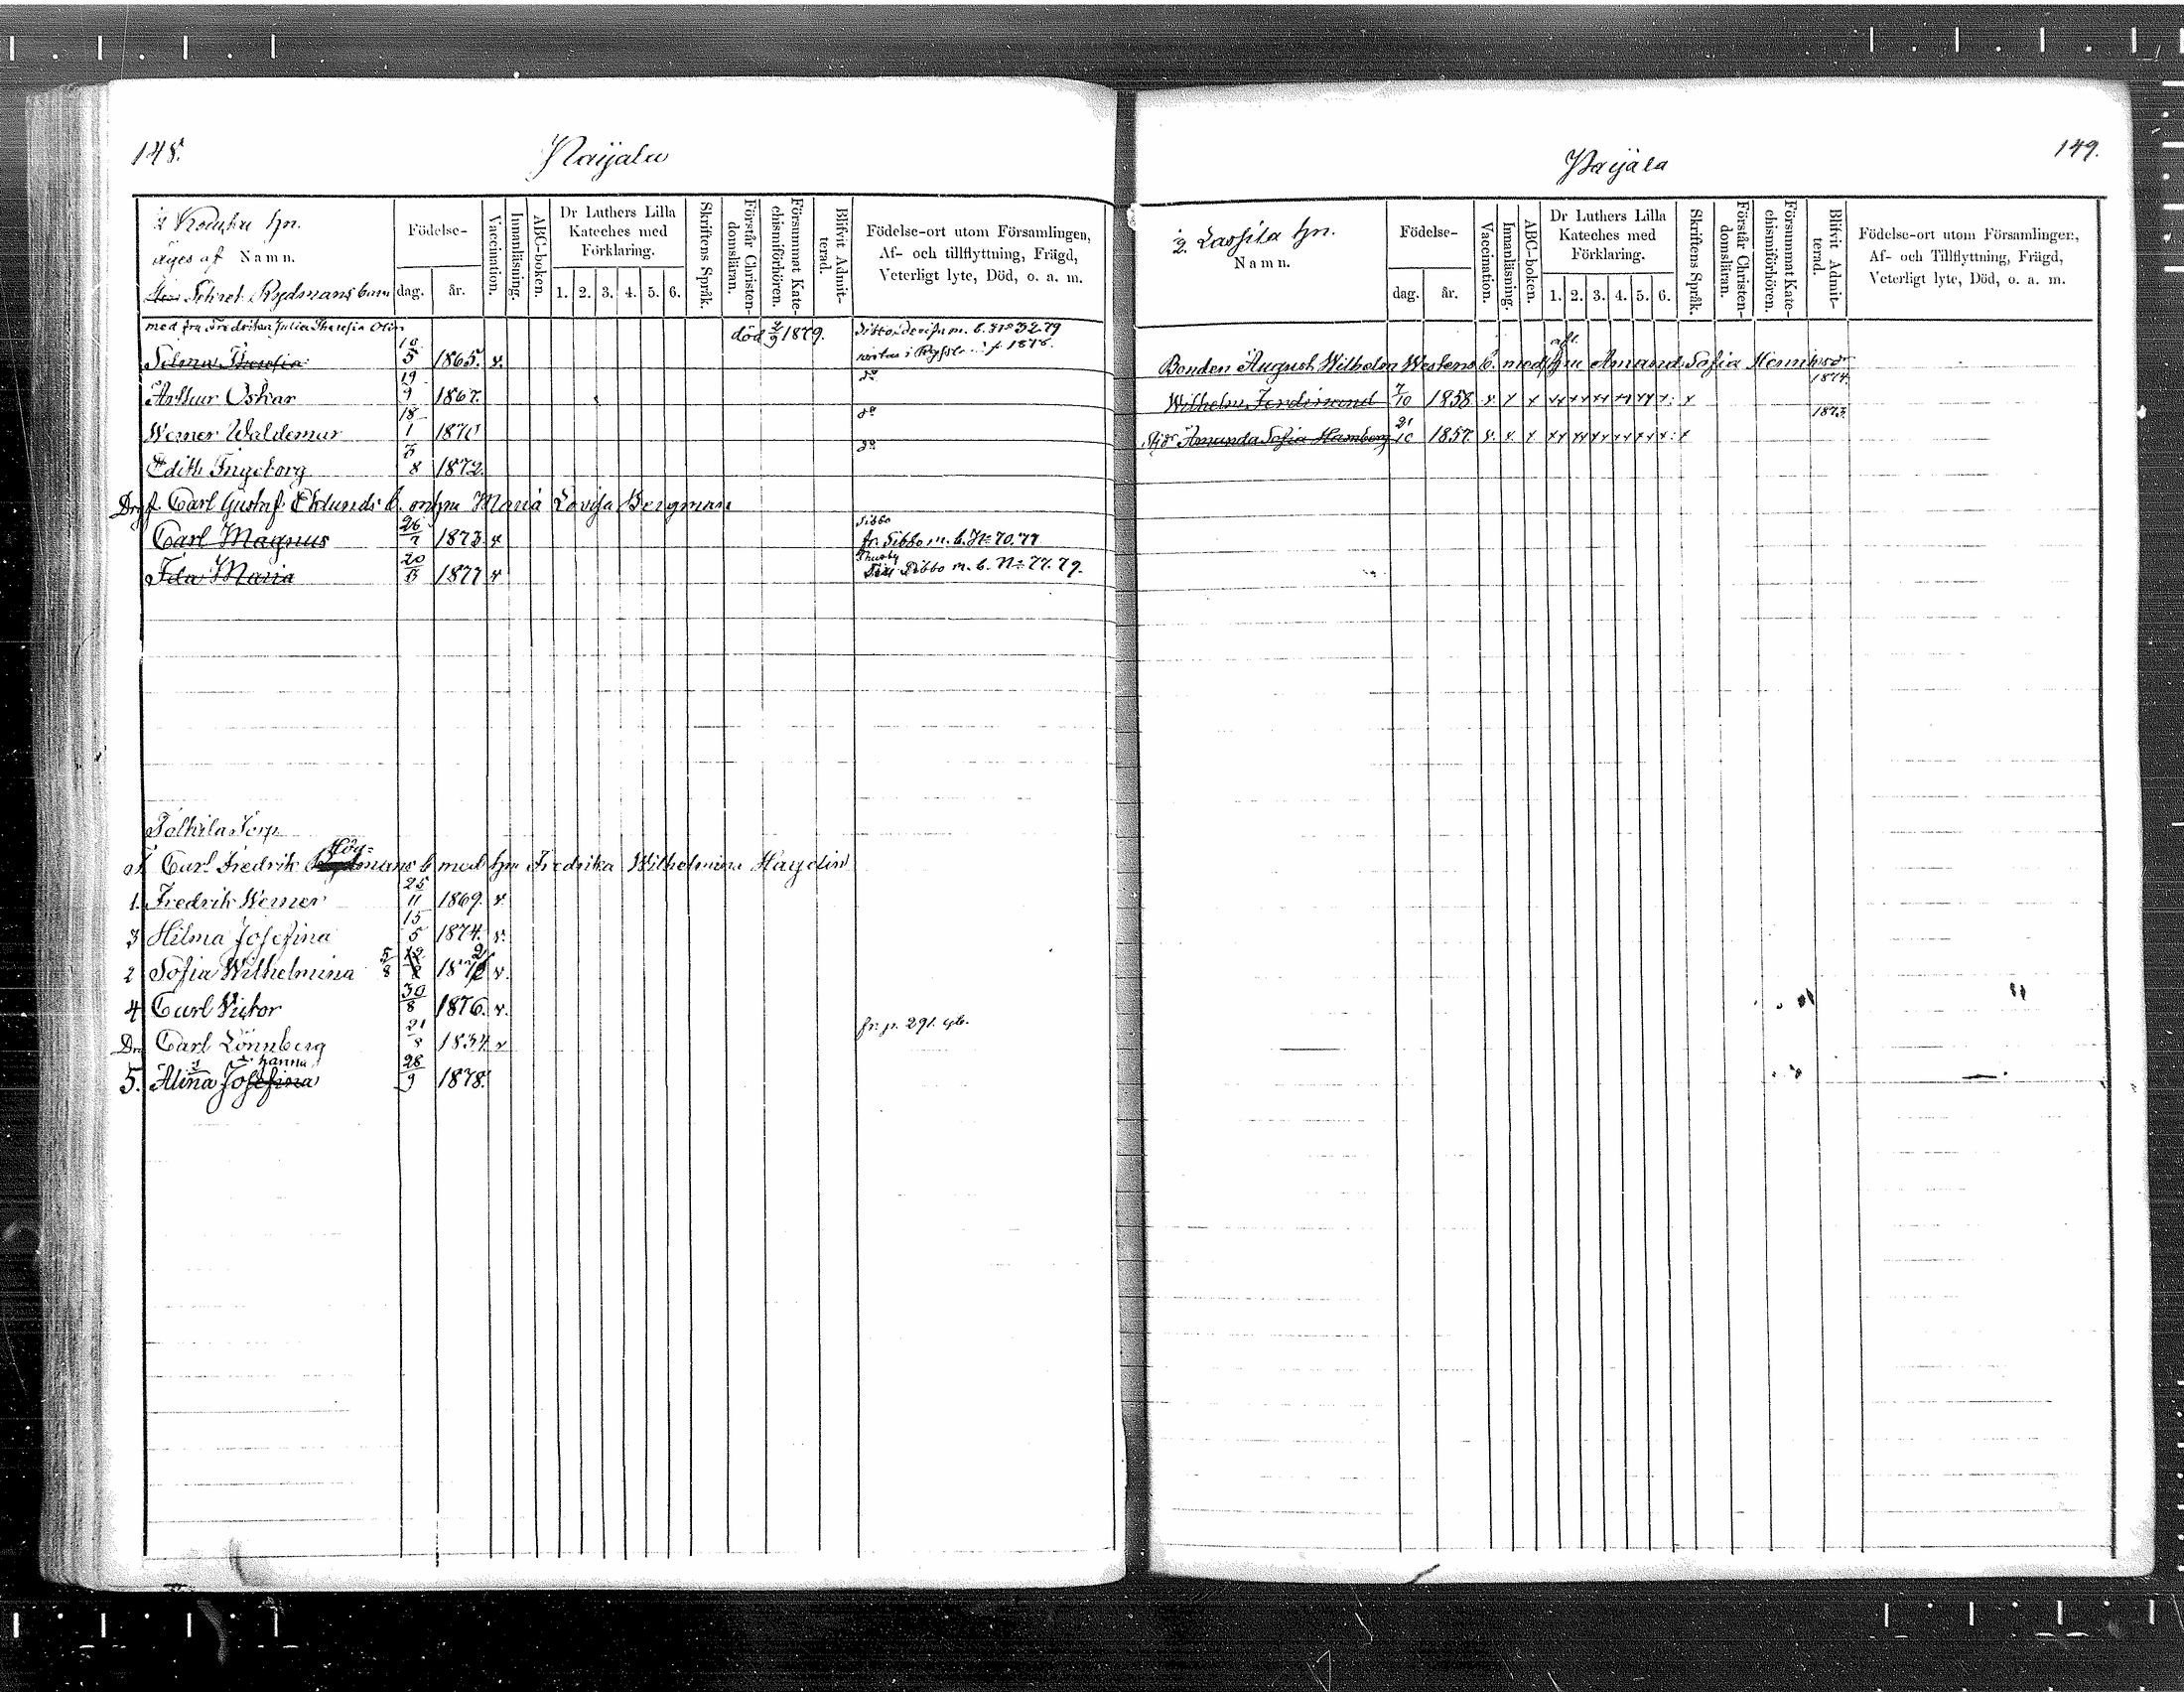 148.
Paijala
2 hn.
äges af Namn.
Sekret. Rydmans barn
med fru Fredrika Julia Theresia Olin
Födelse-
dag. år.
Vaccination.
Innanläsning.
ABC-boken.
Dr Luthers Lilla
Kateches med
Förklaring.
1. 2. 3. 4. 5. 6.
Skriftens Språk.
Förstår Christen-
domsläran.
Försummat Kate-
chismiförhören.
Blifvit Admit-
terad.
Födelse-ort utom Församlingen,
Af- och tillflyttning, Frägd,
Veterligt lyte, Död, o. a. m.
Selma Theresia 18/5 1865. v. död 2/9 1879. Sibbo m. b. No 32.79
Arthur Oskar 19/9 1867. do
Werner Waldemar 18/1 1870 do
Edith Ingeborg 5/8 1872. do
Drg f. Carl Gustaf Eklunds b. m hu Maria Lovisa Bergman
Carl Magnus 26/7 1873. v Sibbo fr. Sibbo m. b. No 70.77
Ida Maria 20/5 1877 v Thusby Till Sibbo m. b. No 77.79.
Torp
Carl Fredrik Hög-mans b med hu Fredrika Wilhelmina Hagelin
1. Fredrik Werner 25/11 1869. v
3 Hilma Josefina 15/5 1874. v.
2 Sofia Wilhelmina 5/8 12/2 1872 v.
4 Carl Victor 30/8 1876. v.
Drg Carl Lönnberg 21/8 1834 v fr. p. 291.
5. Alina Josefina hanna 28/9 1878.
149.
Paijala
2. Lassila hn.
Namn.
Födelse-
dag. år.
Vaccination.
Innanläsning.
ABC-boken.
Dr Luthers Lilla
Kateches med
Förklaring.
1. 2. 3. 4. 5. 6.
Skriftens Språk.
Förstår Christen-
domsläran.
Försummat Kate-
chismiförhören.
Blifvit Admit-
terad.
Födelse-ort utom Församlingen,
Af- och Tillflyttning, Frägd,
Veterligt lyte, Död, o. a. m.
Bonden August Wilhelm Westens b. med hu Amanda Sofia
Wilhelm Ferdinand 7/10 1858 v x x xx xx xx xx xx x. x 1874.
Amanda Sofia Hamberg 21/10 1857. v. x x xx xx xx xx xx x. x 1873